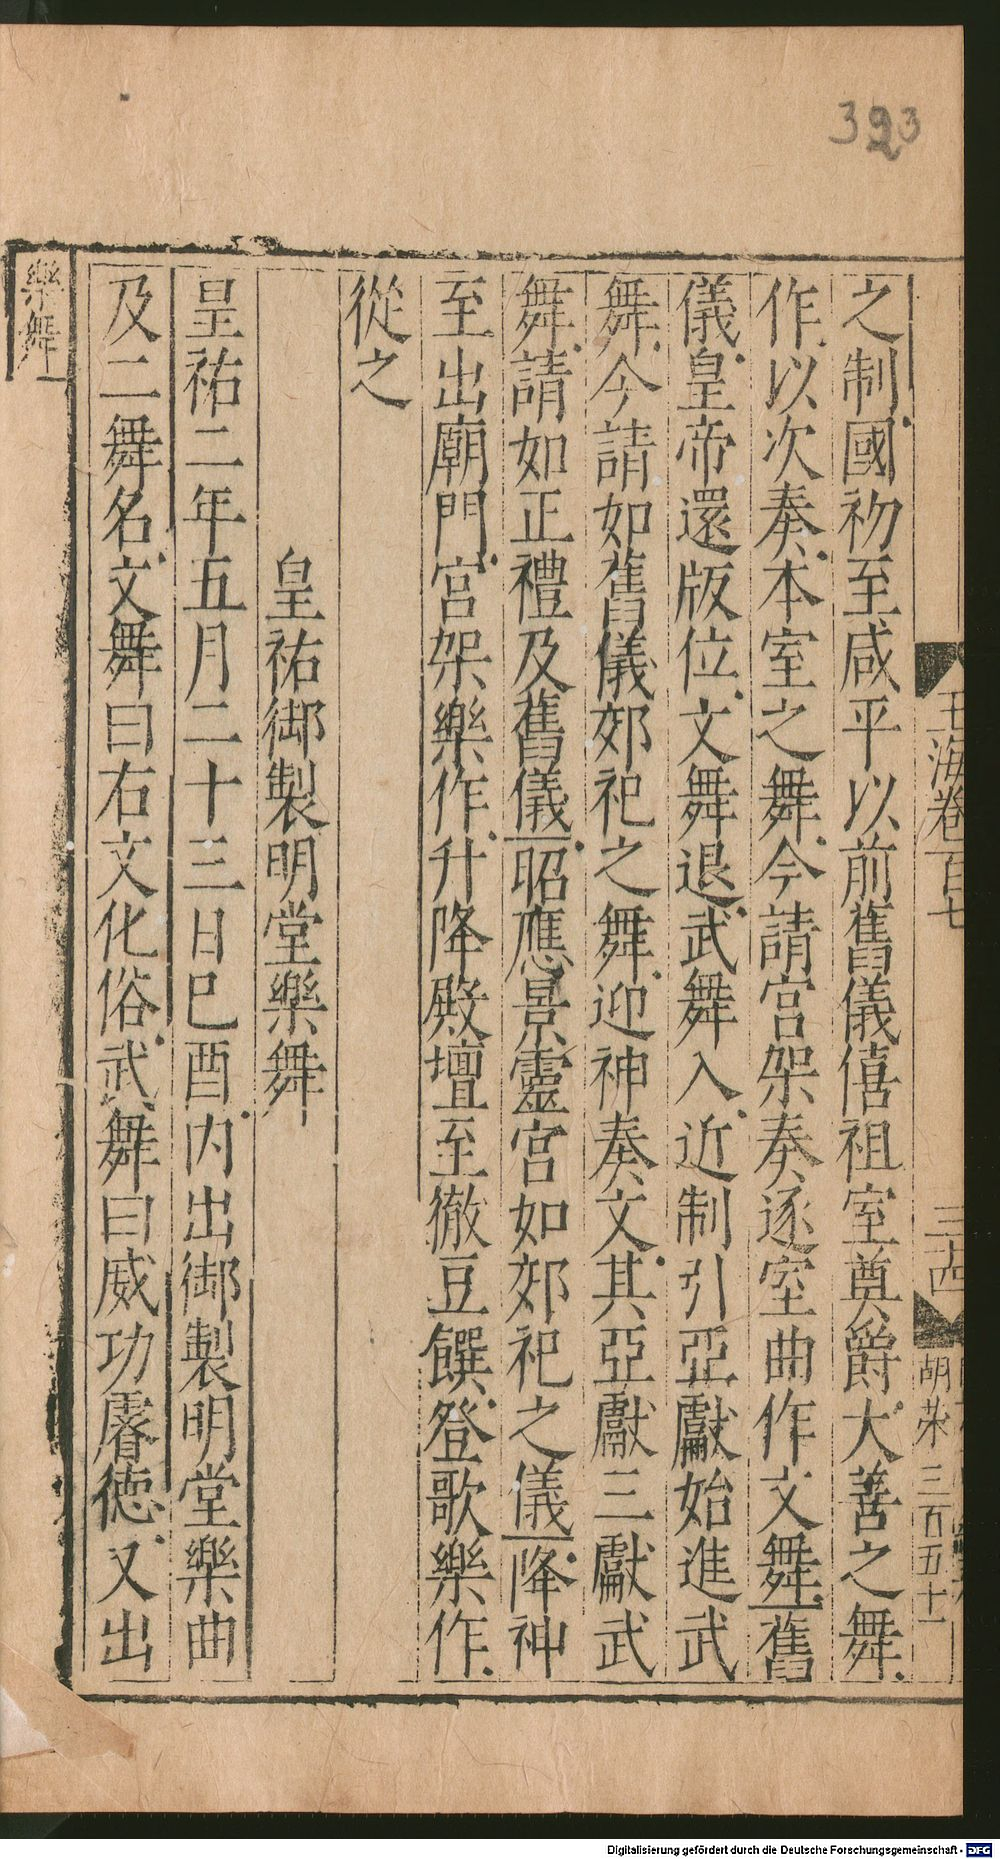 323
玉海卷百七
三十四
胡荣 三百五十一
之制國初至咸平以前舊儀僖祖室奠爵大善之舞
作以次奏本室之舞今請宮架奏逐室曲作文舞舊
儀皇帝還版位文舞退武舞入近制引亞獻始進武
舞今請如舊儀郊祀之舞迎神奏文其亞獻三獻武
舞請如正禮及舊儀昭應景靈宮如郊祀之儀降神
至出廟門宮架樂作升降殿壇至徹豆饌登歌樂作
從之
皇祐御製明堂樂舞
皇祐二年五月二十三日己酉內出御製明堂樂曲
及二舞名文舞曰右文化俗武舞曰威功睿德又出
樂舞
Digitalisierung gefördert durch die Deutsche Forschungsgemeinschaft - DFG